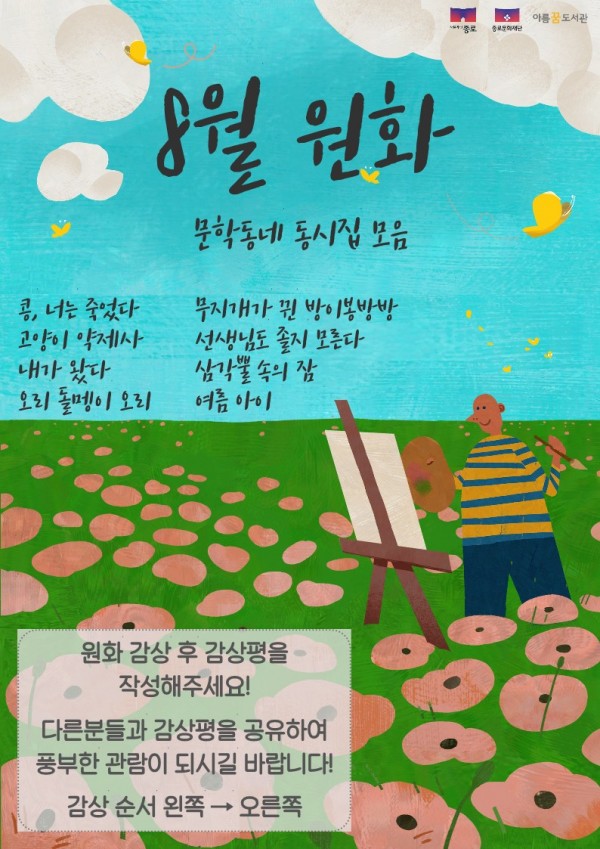 종로
종로문화재단
아름꿈도서관
8월 원화
문학동네 동시집 모음
콩, 너는 죽었다
고양이 약제사
내가 왔다
오리 돌멩이 오리
무지개가 뀐 방이봉방방
선생님도 졸지 모른다
삼각뿔 속의 잠
여름 아이
원화 감상 후 감상평을
작성해주세요!
다른분들과 감상평을 공유하여
풍부한 관람이 되시길 바랍니다!
감상 순서 왼쪽 → 오른쪽